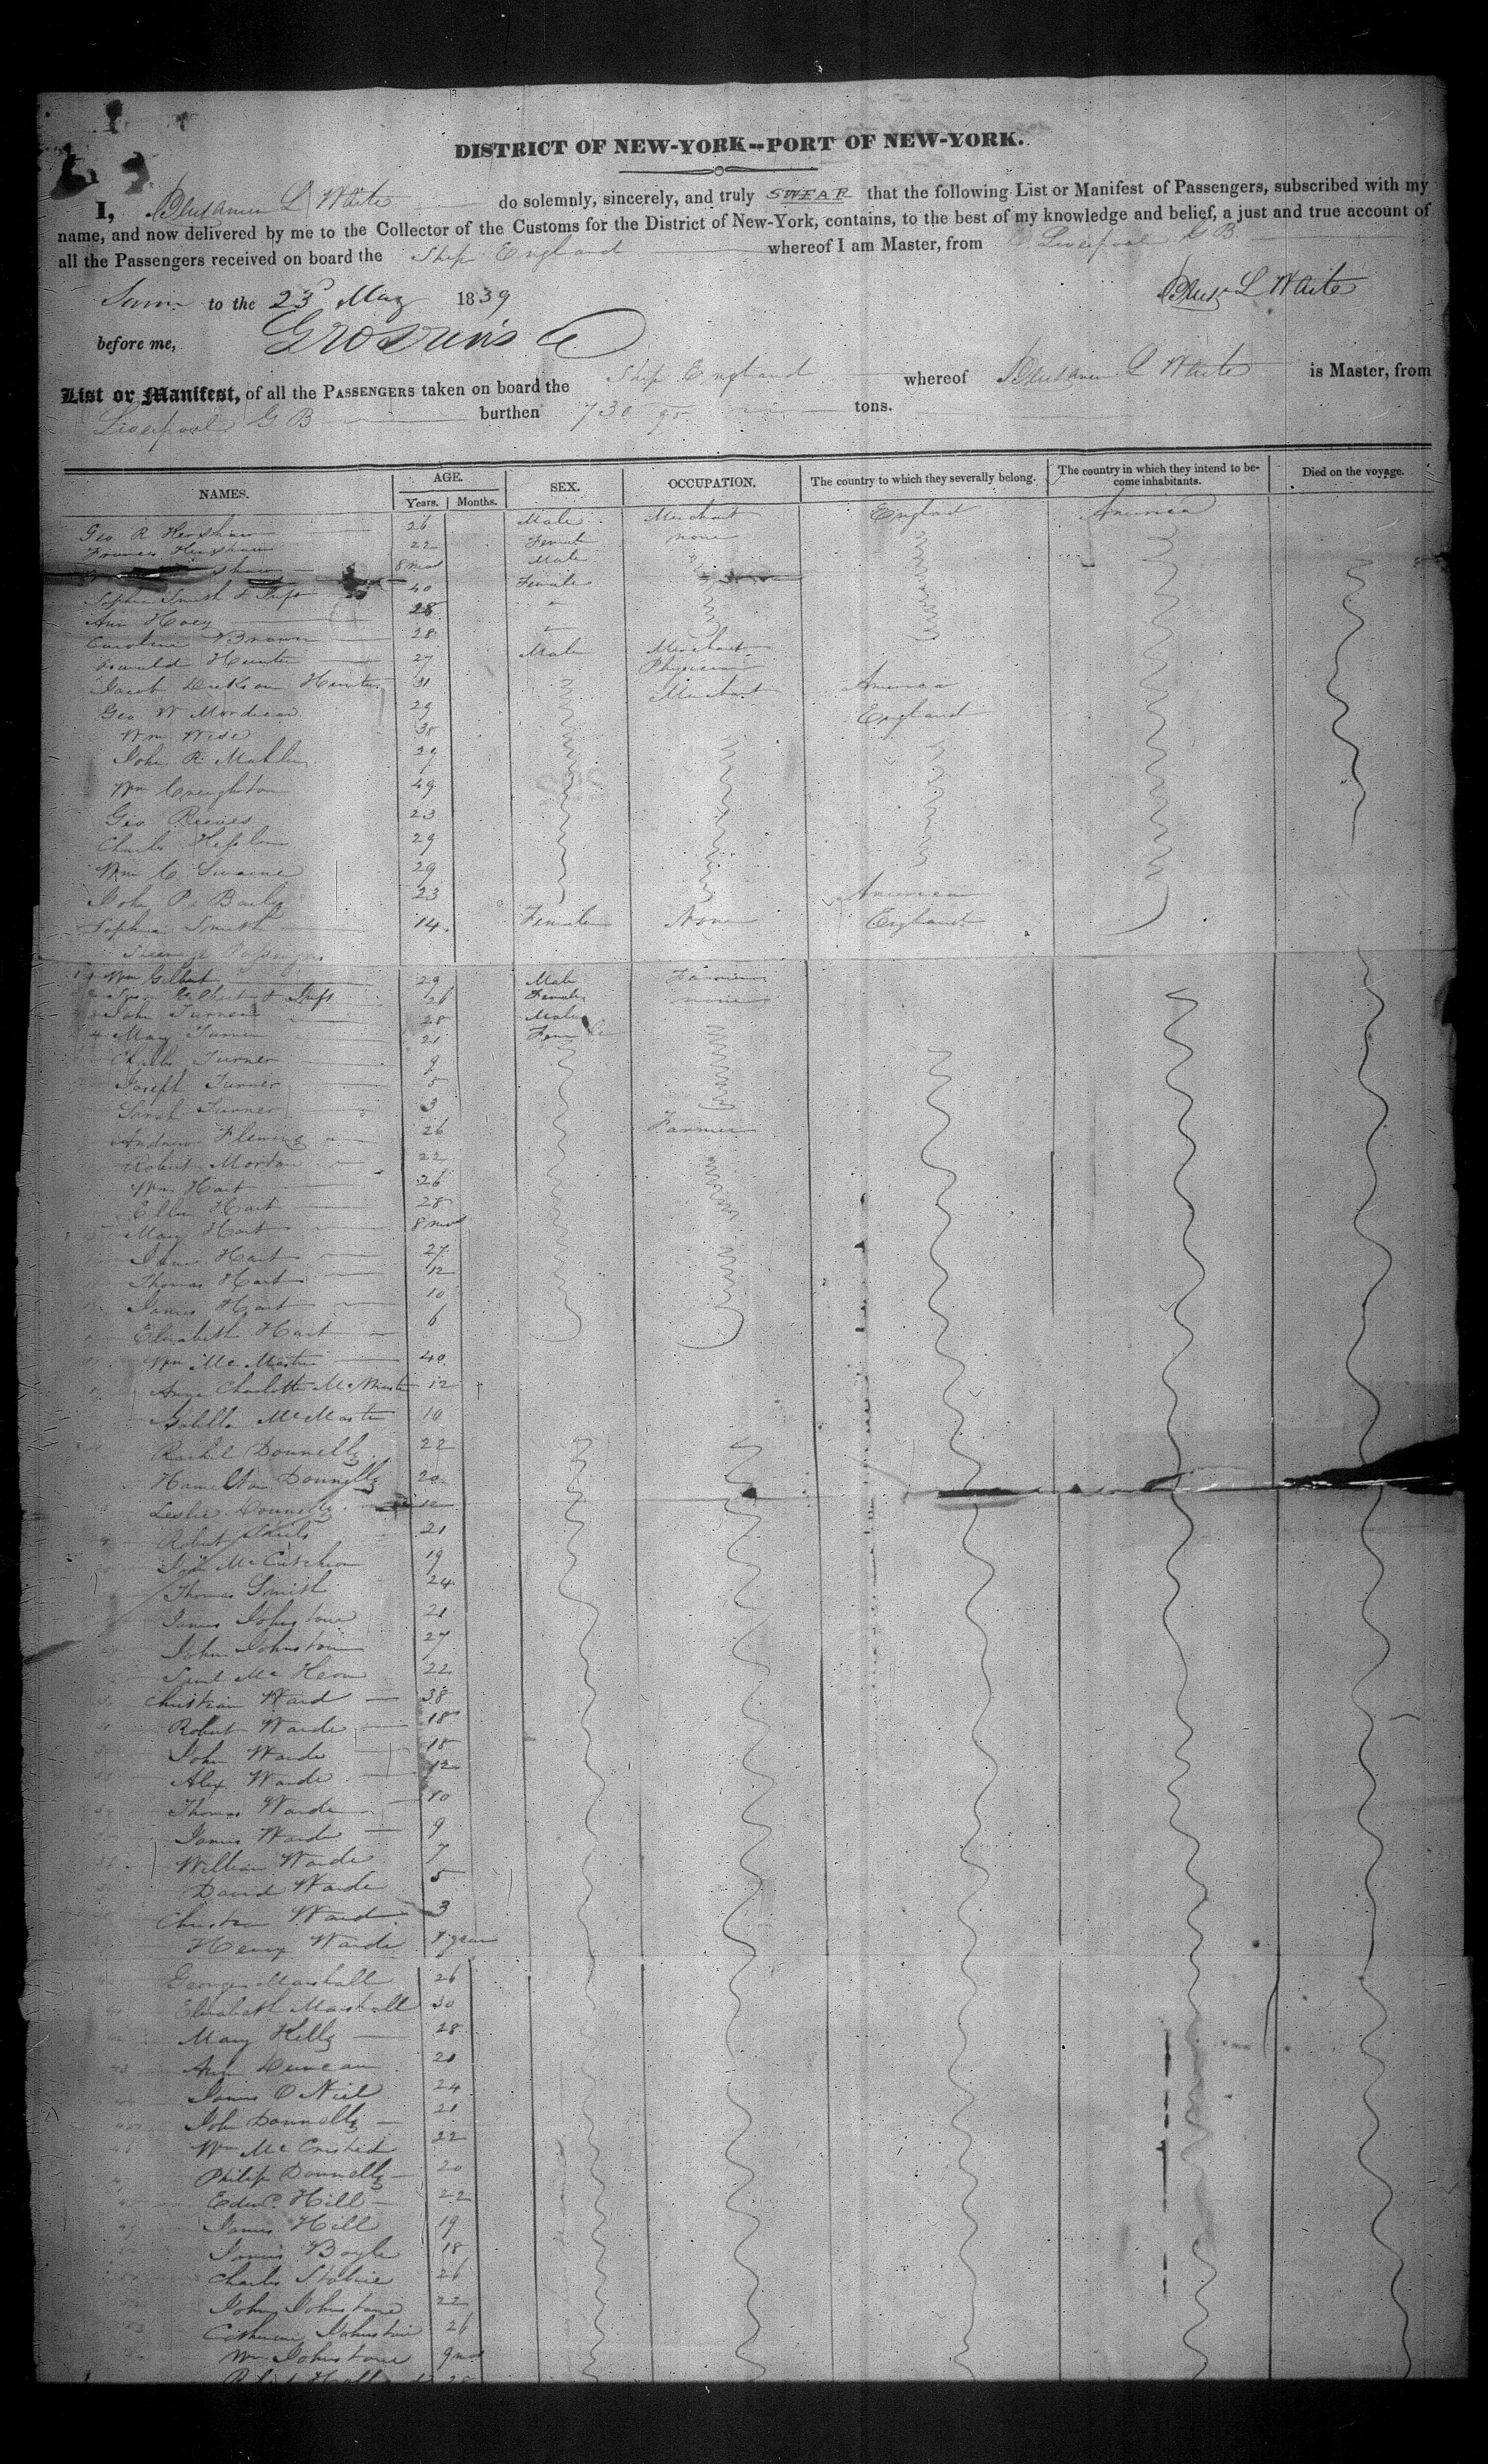 DISTRICT OF NEW-YORK--PORT OF NEW-YORK.
I, Benjamin L White do solemnly, sincerely, and truly SWEAR that the following List or Manifest of Passengers, subscribed with my
name, and now delivered by me to the Collector of the Customs for the District of New-York, contains, to the best of my knowledge and belief, a just and true account of
all the Passengers received on board the Ship England whereof I am Master, from Liverpool G B
to the 23 May 1839 Benj L Waite
before me,
List or Manifest, of all the PASSENGERS taken on board the Ship England whereof Benjamin L Waite is Master, from
Liverpool G B burthen 730 tons.
NAMES. AGE. SEX. OCCUPATION. The country to which they severally belong. The country in which they intend to be-come inhabitants. Died on the voyage.
Years. Months.
Geo R Henshaw 26 Male Merchant England America
Frances Henshaw 22 Female none
shaw 8 mos Male
Sophia Smith 40 Female
Ann Hoey 28 "
Caroline Brown 28 "
Hunter 27 Male Merchant
Jacob Dickson Hunter 31 Physician
Geo W Mordecai 29 Merchant America
Wm Wise 38 England
John R 29
Wm Creighton 49
Geo Reeves 23
Charles 29
Wm C Swaine 29
John P Baily 23 America
Sophia Smith 14 Female None England
Steerage Passengers
Wm Gilbert 29 Male Farmer
Gilbert 26 Female none
John Turner 28 Male
Mary Turner 21 Female
Charles Turner 9
Joseph Turner 5
Sarah Turner 3
Andrew Fleming 26 Farmer
Robert Morton 22
Wm Hart 26
Ellen Hart 28
Mary Hart 8 mos
Hart 27
Thomas Hart 12
James Hart 10
Elizabeth Hart 6
Wm McMaster 40
Anne Charlotte McMaster 12
McMaster 10
Rachel Donnelly 22
Hamilton Donnelly 20
Leslie Donnelly 12
Robert 21
John McCutcheon 19
Thomas Smith 24
James Johnstone 21
John Johnston 27
Saml Mc 22
Christian Ward 38
Robert Warde 18
John Warde 15
Alex Warde 12
Thomas Warde 10
James Warde 9
William Warde 7
David Warde 5
Ward 3
Henry Warde 1 year
George Marshall 26
Elizabeth Marshall 30
Mary Kelly 28
Ann Duncan 21
James O Niel 24
John Donnelly 21
Wm Mc 22
Philip Donnelly 20
Edwd Hill 22
James Hill 19
James Boyle 18
Charles 26
John Johnstone 22
Catherine Johnstone 26
Wm Johnstone 9 mos
Hall 28